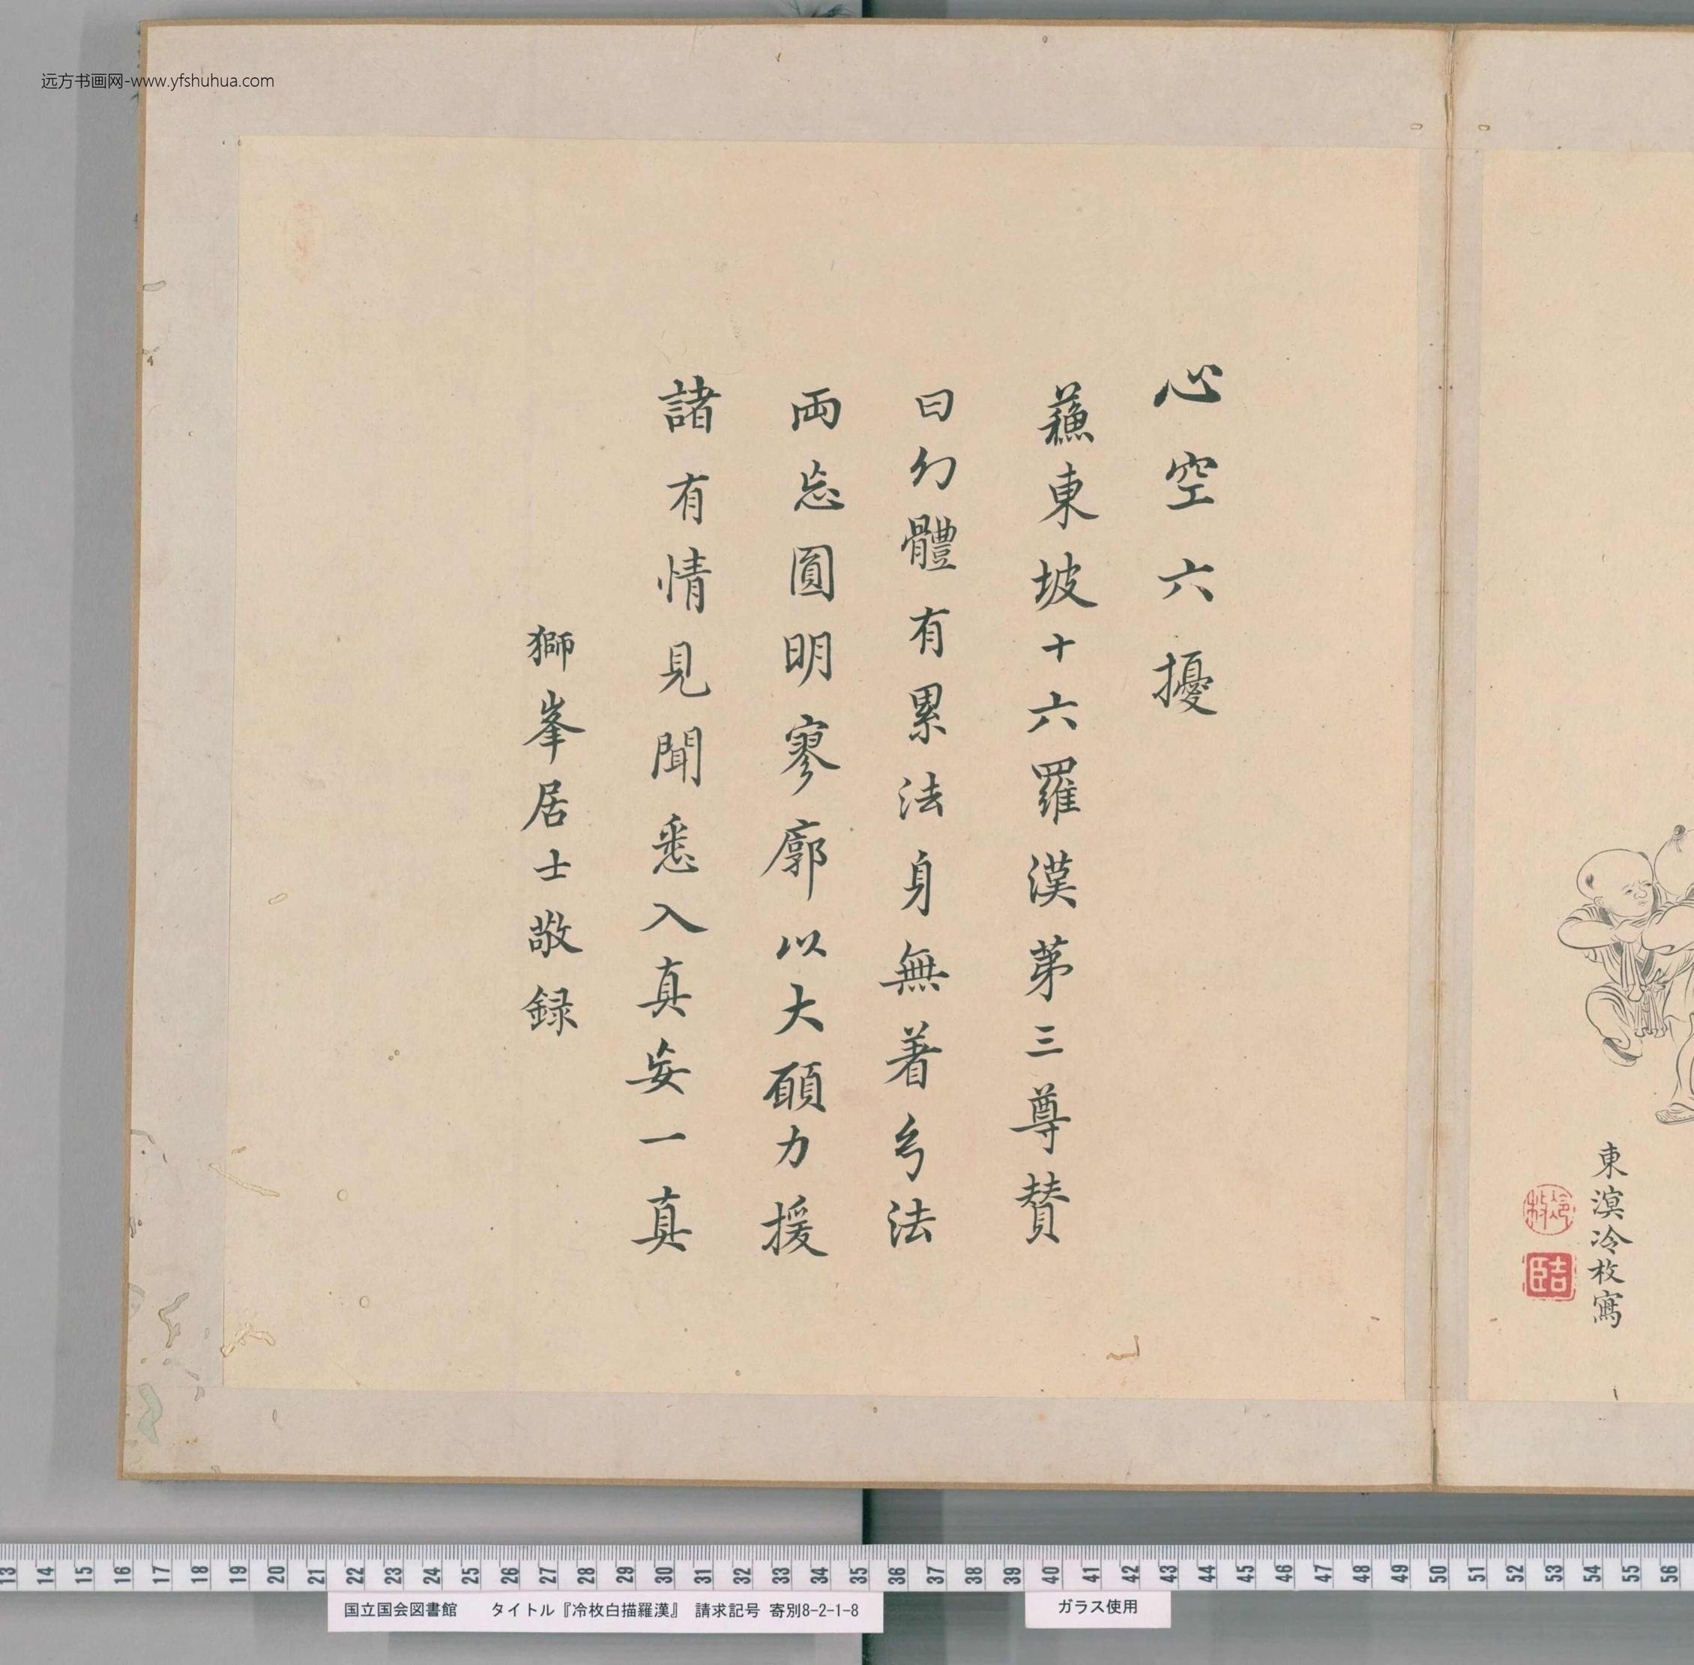 远方书画网-www.yfshuhua.com
心空六擾
蘓東坡十六羅漢苐三尊賛
曰幻體有累法身無著兮法
両忘圓明寥廓以大願力援
諸有情見聞悉入真妄一真
獅峯居士敬録
東溟冷枚寫
冷枚
吉臣
13 14 15 16 17 18 19 20 21 22 23 24 25 26 27 28 29 30 31 32 33 34 35 36 37 38 39 40 41 42 43 44 45 46 47 48 49 50 51 52 53 54 55 56
国立国会図書館 タイトル『冷枚白描羅漢』 請求記号 寄別8-2-1-8
ガラス使用